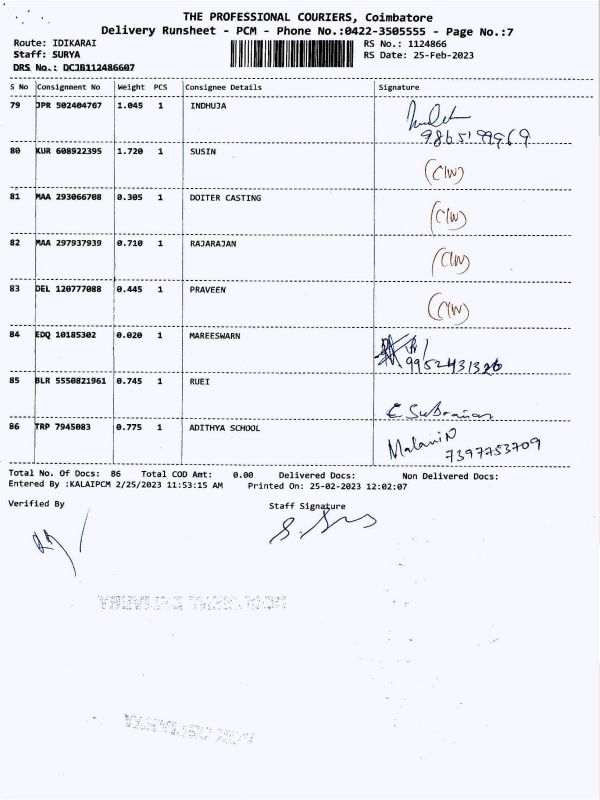 THE PROFESSIONAL COURIERS, Coimbatore
Delivery Runsheet - PCM - Phone No.:0422-3505555 - Page No.:7
Route: IDIKARAI RS No.: 1124866
Staff: SURYA RS Date: 25-Feb-2023
DRS No.: DCJB112486607
S No Consignment No Weight PCS Consignee Details Signature
79 JPR 502404767 1.045 1 INDHUJA
9865199969
80 KUR 608922395 1.720 1 SUSIN (CIW)
81 MAA 293066708 0.305 1 DOITER CASTING (CIW)
82 MAA 297937939 0.710 1 RAJARAJAN (CIW)
83 DEL 120777088 0.445 1 PRAVEEN (CIW)
84 EDQ 10185302 0.020 1 MAREESWARN
9952431326
85 BLR 5550821961 0.745 1 RUEI
86 TRP 7945083 0.775 1 ADITHYA SCHOOL
7397753709
Total No. Of Docs: 86 Total COD Amt: 0.00 Delivered Docs: Non Delivered Docs:
Entered By :KALAIPCM 2/25/2023 11:53:15 AM Printed On: 25-02-2023 12:02:07
Verified By Staff Signature